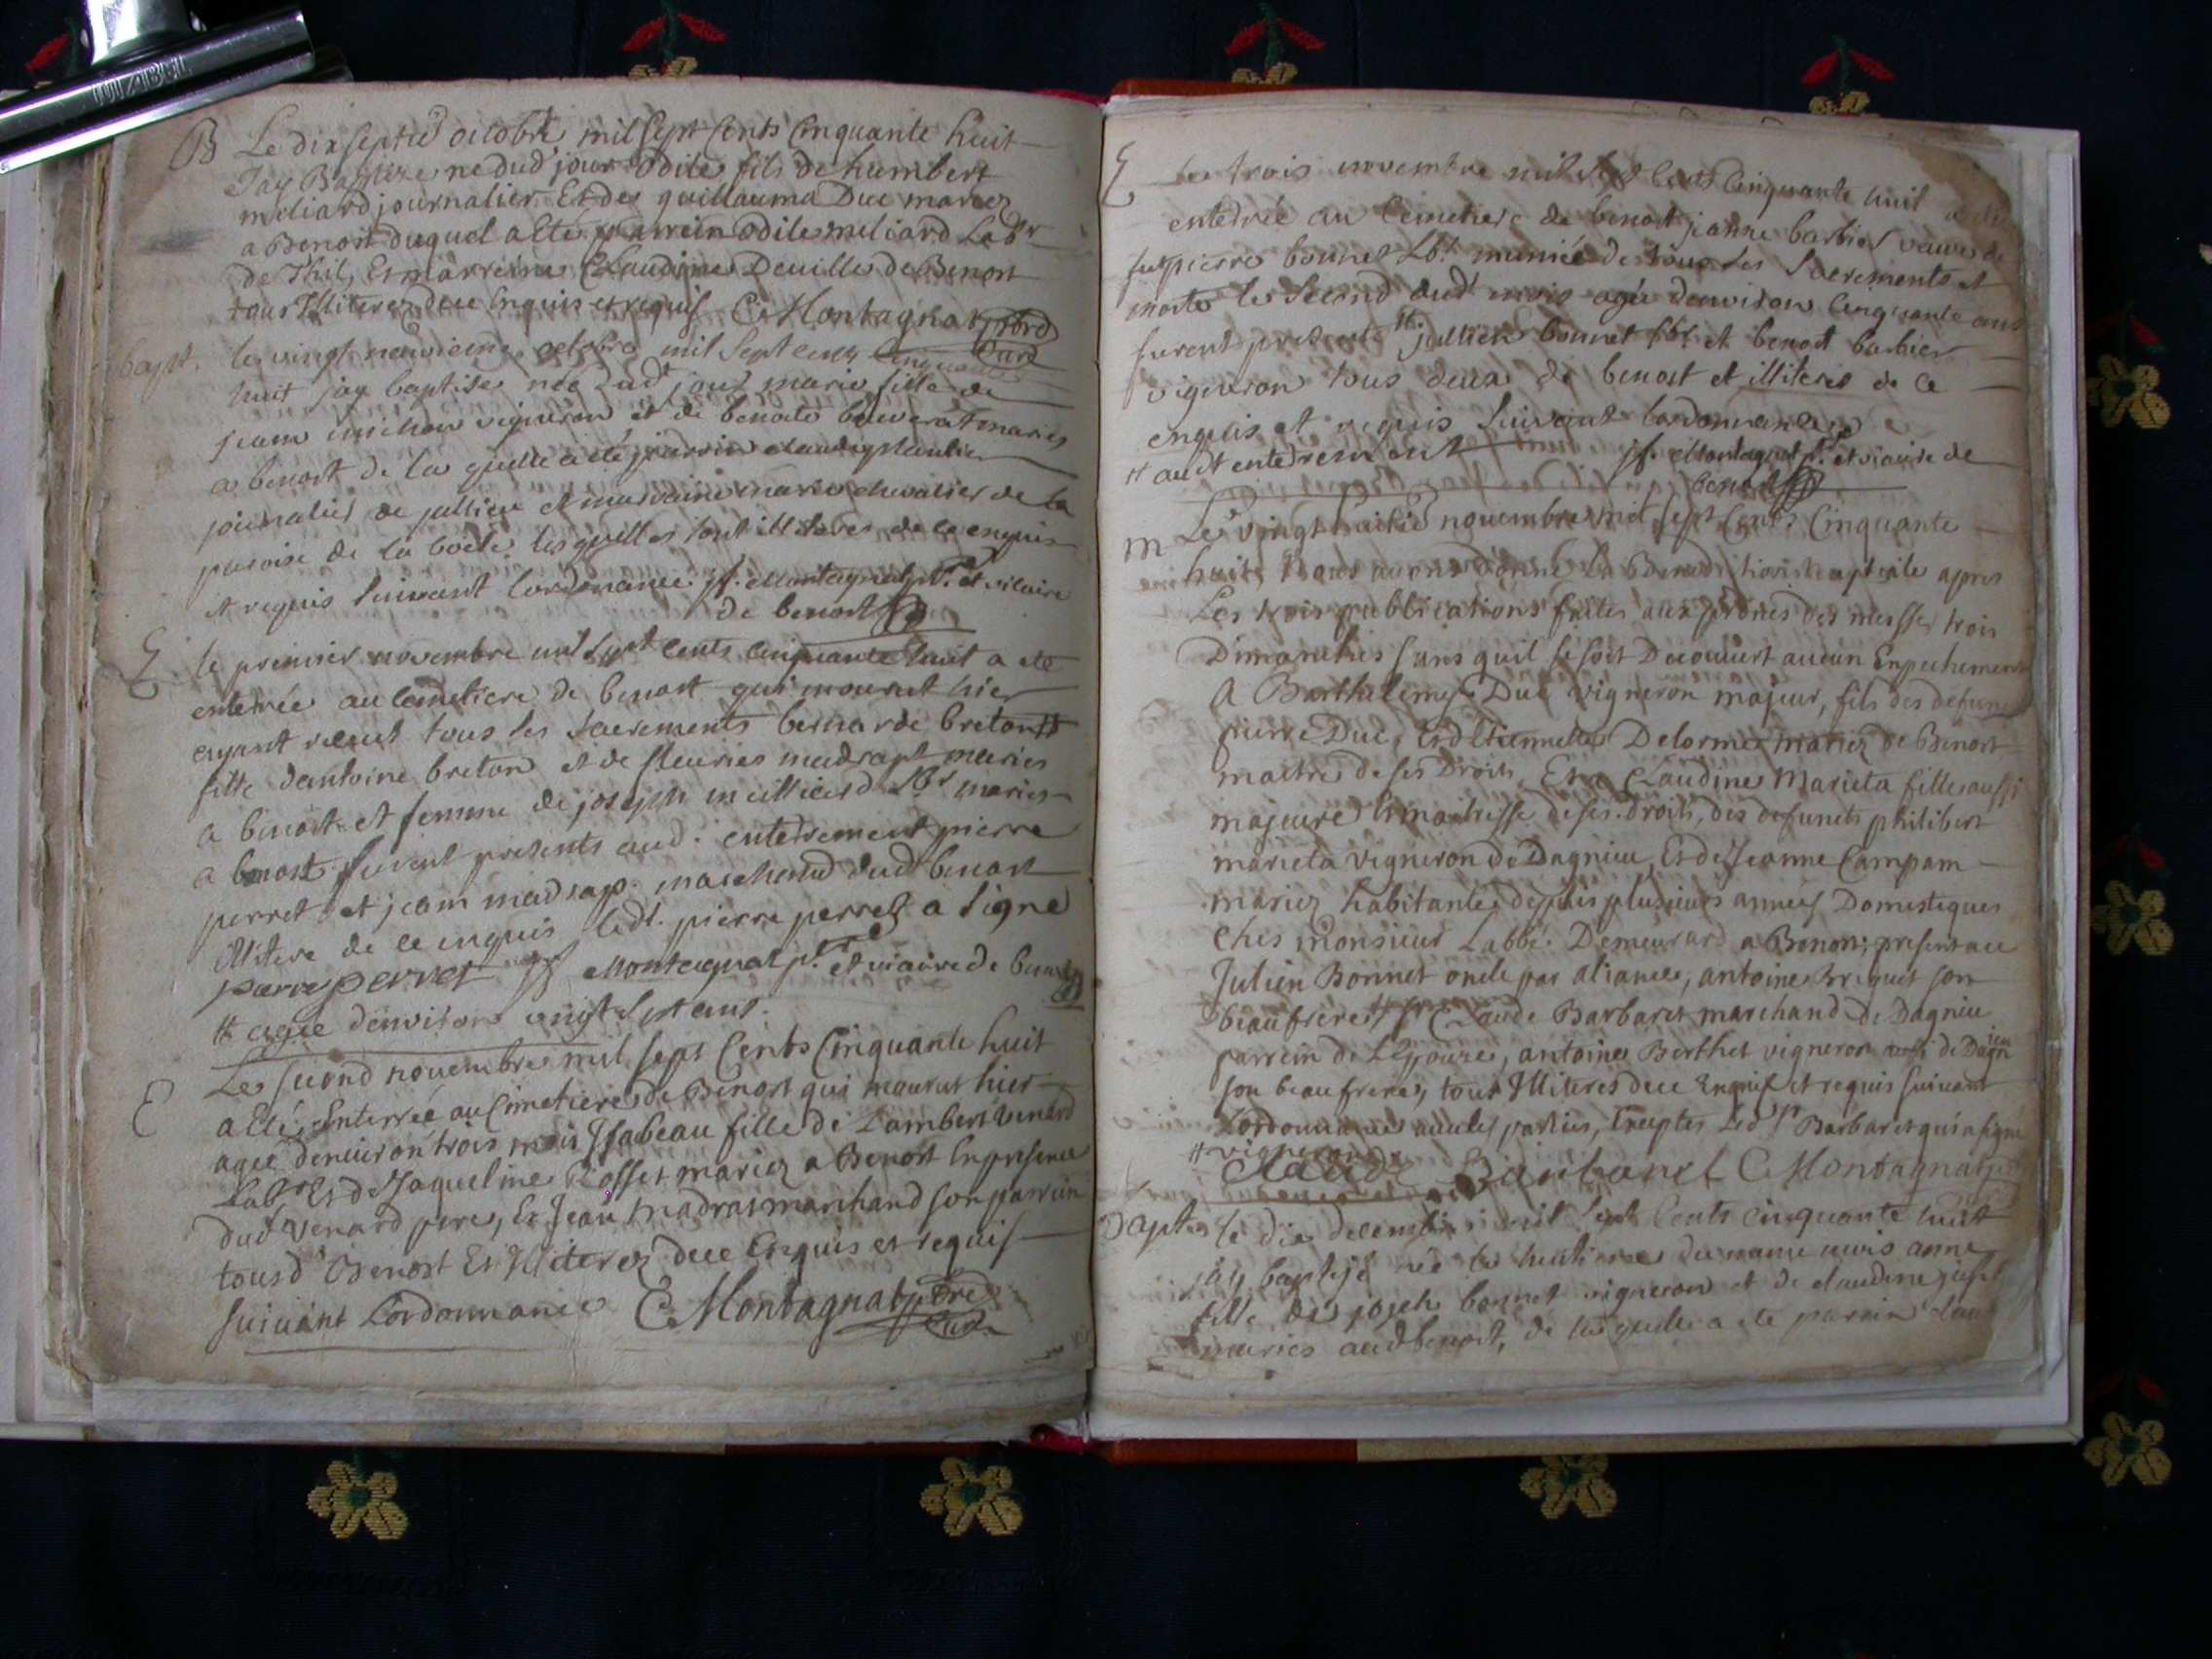 B Le dix septie octobre mil sept cents cinquante huit
Jay Baptize ne dud jour Odile fils de humbert
meliard journalier Et de guillauma Duc mariez
a Benost duquel a Eté parrein odile meliard Lab.r
de Thil, Et marreine Claudine Deville de Benost
tous Illiterez de ce Enquis et requis C. Montagnat pbre
Curé
bapt. le vingt neuvieme octobre mil sept cens cinquante
huit jay baptise née dud.t jour marie fille de
jean michon vigneron et de benoite bouverat maries
a benost de la quelle a été parrin claudy
journalier de jallieu et marraine marie chevalier de la
paroise de la boële lesquelles sont illiteres de ce enquis
et requis suivant lordonance jf. Montagnat p.tre et vicaire
de benost
E le premier novembre mil sept cents cinquante huit a ete
enterrée au cemetiere de benost qui mourut hier
ayant receut tous les sacrements bernarde breton #
fille dantoine breton et de fleurie madrapt maries
a benost et femme de joseph meilliard lbr maries
a benost furent presents aud. enterrement pierre
perret et jean madrap. marchand dud benost
illitere de ce enquis led.t pierre perret a signe
pierre perret jf Montagnat p.tre et vicaire de benost
# agee denviron vingt sept ans.
E Le second novembre mil sept Cents Cinquante huit
a Eté Enterrée au Cimetiere de Benost qui mourut hier
agée denviron trois mois Isabeau fille de Lambert Venard
Lab.r Et de Jaqueline Rosset mariez a Benost En presence
dud.t Venard pere, Et Jean Madrat marchand son parrein
tous d Benost Et Illiterez de ce Enquis et requis
suivant Lordonnance C. Montagnat pbre
Curé
E Le trois novembre mil sept cents cinquante huit a été
enterrée au cemetiere de benost jeanne barbier veuve de
fut pierre bonnet lbr. muniée de tous les sacrements et
morte le second dud.t mois agée denviron cinquante ans
furent presents # jullien bonnet lbr et benost barbier
vigneron tous deux de benost et illiteres de ce
enquis et requis suivant lordonnance
# audt enterrement jf. Montagnat p.tre et vicaire de
benost
m Le vingt huitie novembre mil sept Cents Cinquante
huit, Nous avons donné La Benediction nuptiale apres
Les trois publications faites aux prônes des messes trois
Dimanches sans quil se soit Decouvert aucun Enpechement
A Barthelemy Duc vigneron majeur, fils des defunts
pierre Duc, Et d'Etiennette Delorme mariez de Benost
maitre de ses Droits, Et a Claudine Marieta fille aussi
majeure Et maitresse de ses droits, des defuncts philibert
marieta vigneron de Dagnieu, Et de Jeanne Campam
mariez habitante depuis plusieurs années Domestiques
Ches monsieur Labbé Demeurard a Benost; presentz
Julien Bonnet oncle par aliance, antoine Briquet son
beaufrere, # Sr Claude Barbaret marchand de Dagnieu
parrein de Lepouze, antoine Berthet vigneron de Dagnieu
son beaufrere, tous Illiteres de ce Enquis et requis suivant
Lordonnance avec les parties, Exceptez Led Sr Barbaret qui a signé
# vigneron
Claude Barbaret C. Montagnat
Baptes le dix decembre mil sept cents cinquante huit
jay baptisé née le huitieme du meme mois anne
fille de joseph bonnet vigneron et de claudine
maries aud benost, de la quelle a ete parrin